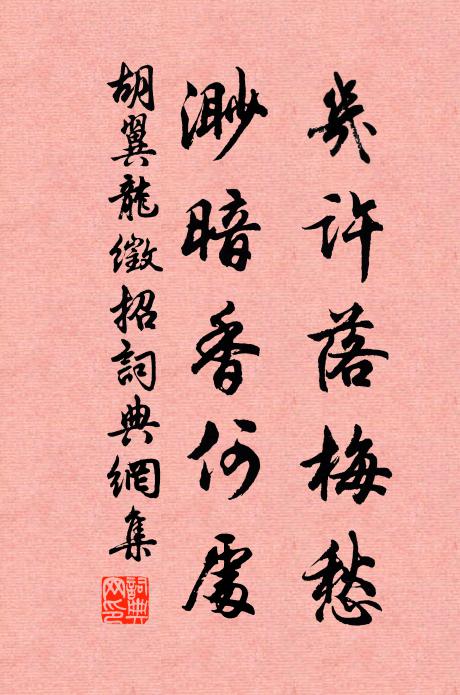 幾許落梅愁
渺暗香何處
胡翼龍徵招詞典網集
詞典網印